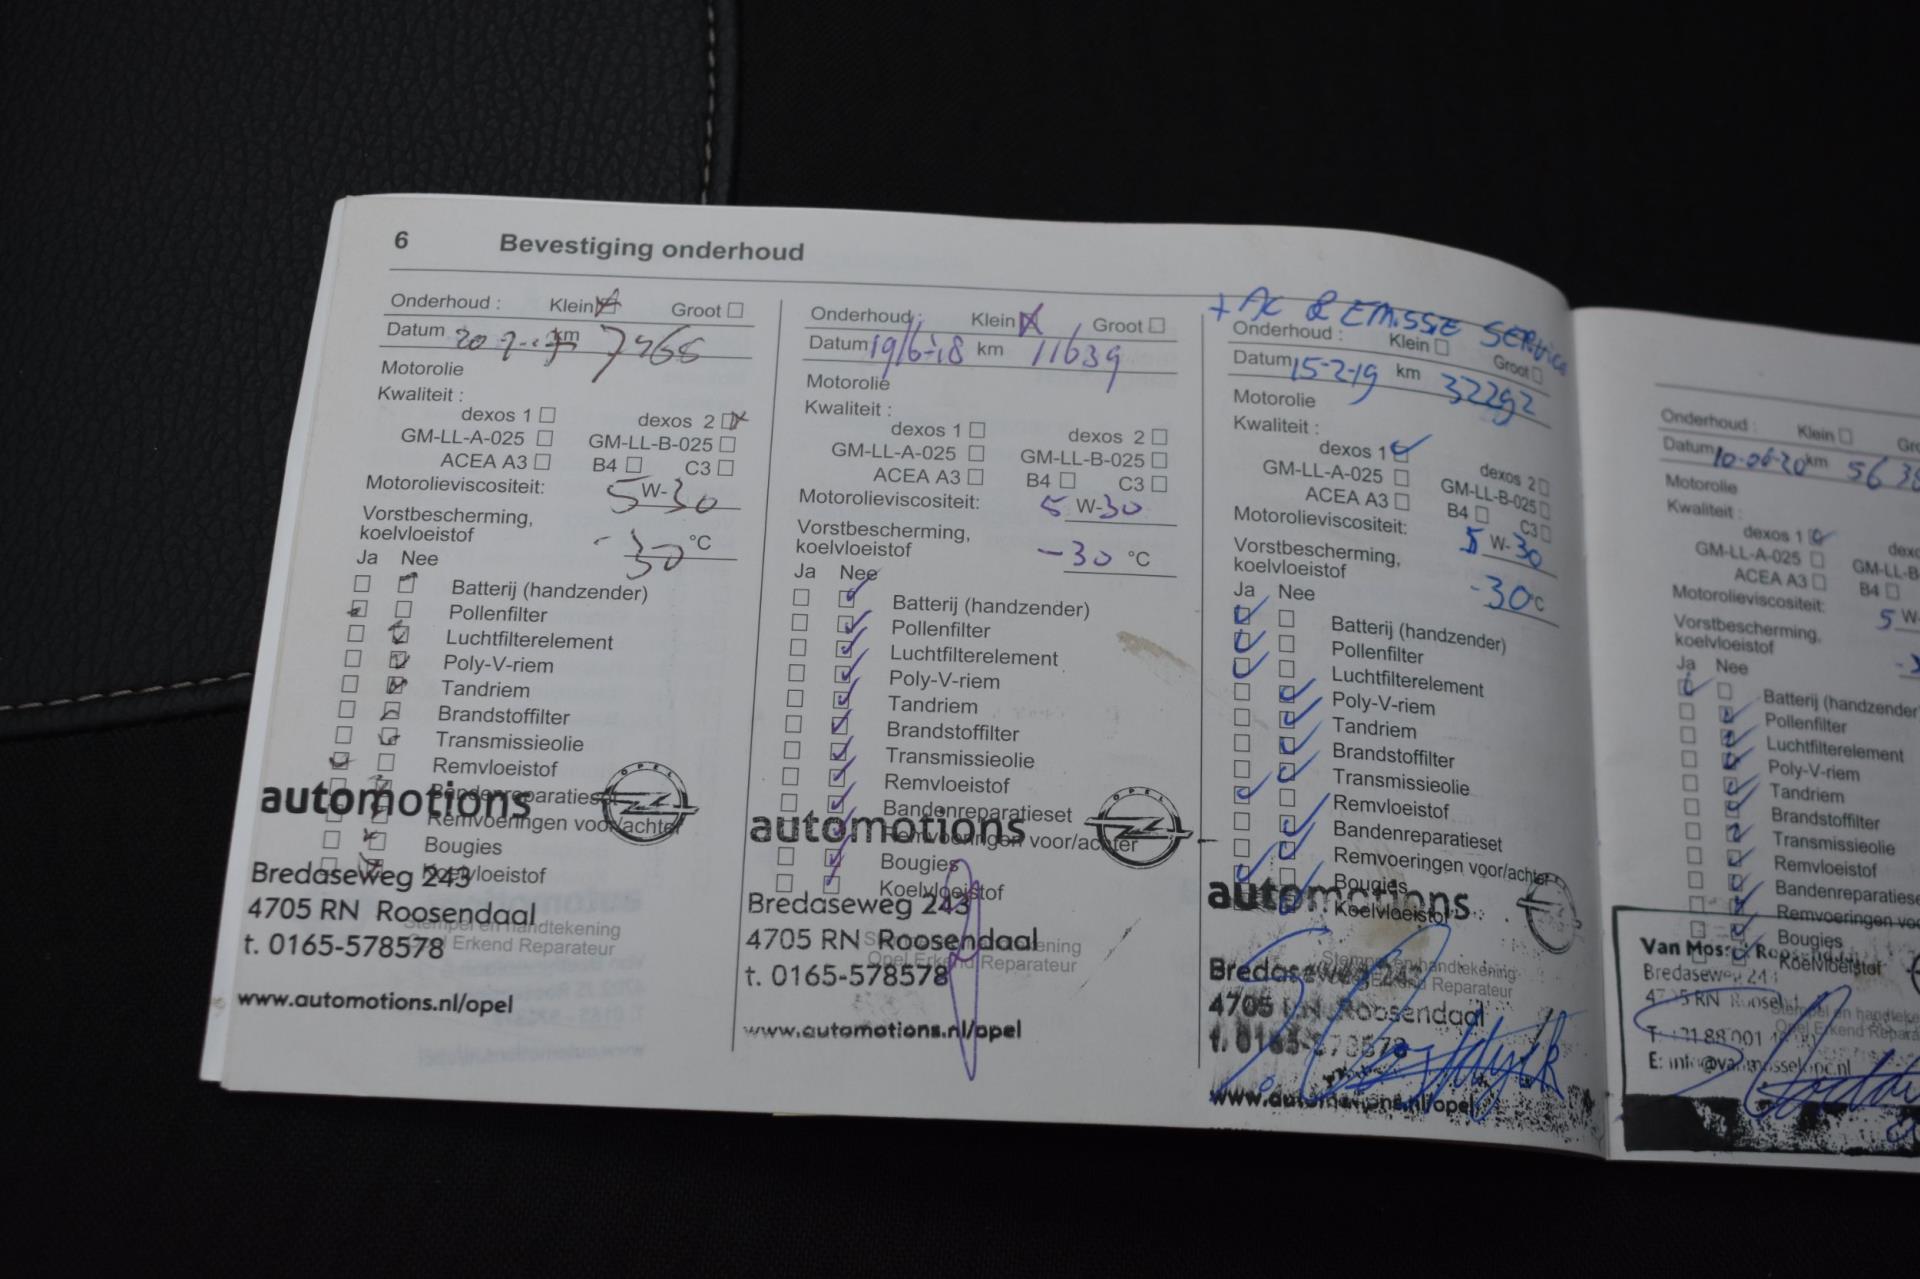 6 Bevestiging onderhoud
Onderhoud : Klein Groot
Datum km 7468
Motorolie
Kwaliteit :
dexos 1 dexos 2
GM-LL-A-025 GM-LL-B-025
ACEA A3 B4 C3
Motorolieviscositeit: 5 W-30
Vorstbescherming,
koelvloeistof -30 °C
Ja Nee
Batterij (handzender)
Pollenfilter
Luchtfilterelement
Poly-V-riem
Tandriem
Brandstoffilter
Transmissieolie
Remvloeistof
Bandenreparatieset
Remvoeringen voor/achter
Bougies
Koelvloeistof
Stempel en handtekening
Opel Erkend Reparateur
automotions
OPEL
Bredaseweg 243
4705 RN Roosendaal
t. 0165-578578
www.automotions.nl/opel
Onderhoud: Klein Groot
Datum 19/6-18 km 11639
Motorolie
Kwaliteit :
dexos 1 dexos 2
GM-LL-A-025 GM-LL-B-025
ACEA A3 B4 C3
Motorolieviscositeit: 5 W-30
Vorstbescherming,
koelvloeistof -30 °C
Ja Nee
Batterij (handzender)
Pollenfilter
Luchtfilterelement
Poly-V-riem
Tandriem
Brandstoffilter
Transmissieolie
Remvloeistof
Bandenreparatieset
Remvoeringen voor/achter
Bougies
Koelvloeistof
Stempel en handtekening
Opel Erkend Reparateur
automotions
OPEL
Bredaseweg 243
4705 RN Roosendaal
t. 0165-578578
www.automotions.nl/opel
+ AC & EMISSIE SERVICE
Onderhoud : Klein Groot
Datum 15-2-19 km 32292
Motorolie
Kwaliteit :
dexos 1 dexos 2
GM-LL-A-025 GM-LL-B-025
ACEA A3 B4 C3
Motorolieviscositeit: 5 W-30
Vorstbescherming,
koelvloeistof -30 °C
Ja Nee
Batterij (handzender)
Pollenfilter
Luchtfilterelement
Poly-V-riem
Tandriem
Brandstoffilter
Transmissieolie
Remvloeistof
Bandenreparatieset
Remvoeringen voor/achter
Bougies
Koelvloeistof
Stempel en handtekening
Erkend Reparateur
automotions
Bredaseweg 243
4705 RN Roosendaal
t. 0165-578578
www.automotions.nl/opel
Onderhoud : Klein
Datum 10-06-20 km
Motorolie
Kwaliteit :
dexos 1
GM-LL-A-025 GM-LL-B
ACEA A3 B4
Motorolieviscositeit: 5 W-
Vorstbescherming,
koelvloeistof
Ja Nee
Batterij (handzender
Pollenfilter
Luchtfilterelement
Poly-V-riem
Tandriem
Brandstoffilter
Transmissieolie
Remvloeistof
Bandenreparatiese
Remvoeringen vo
Bougies
Koelvloeistof
Opel Erkend Repara
Bredaseweg